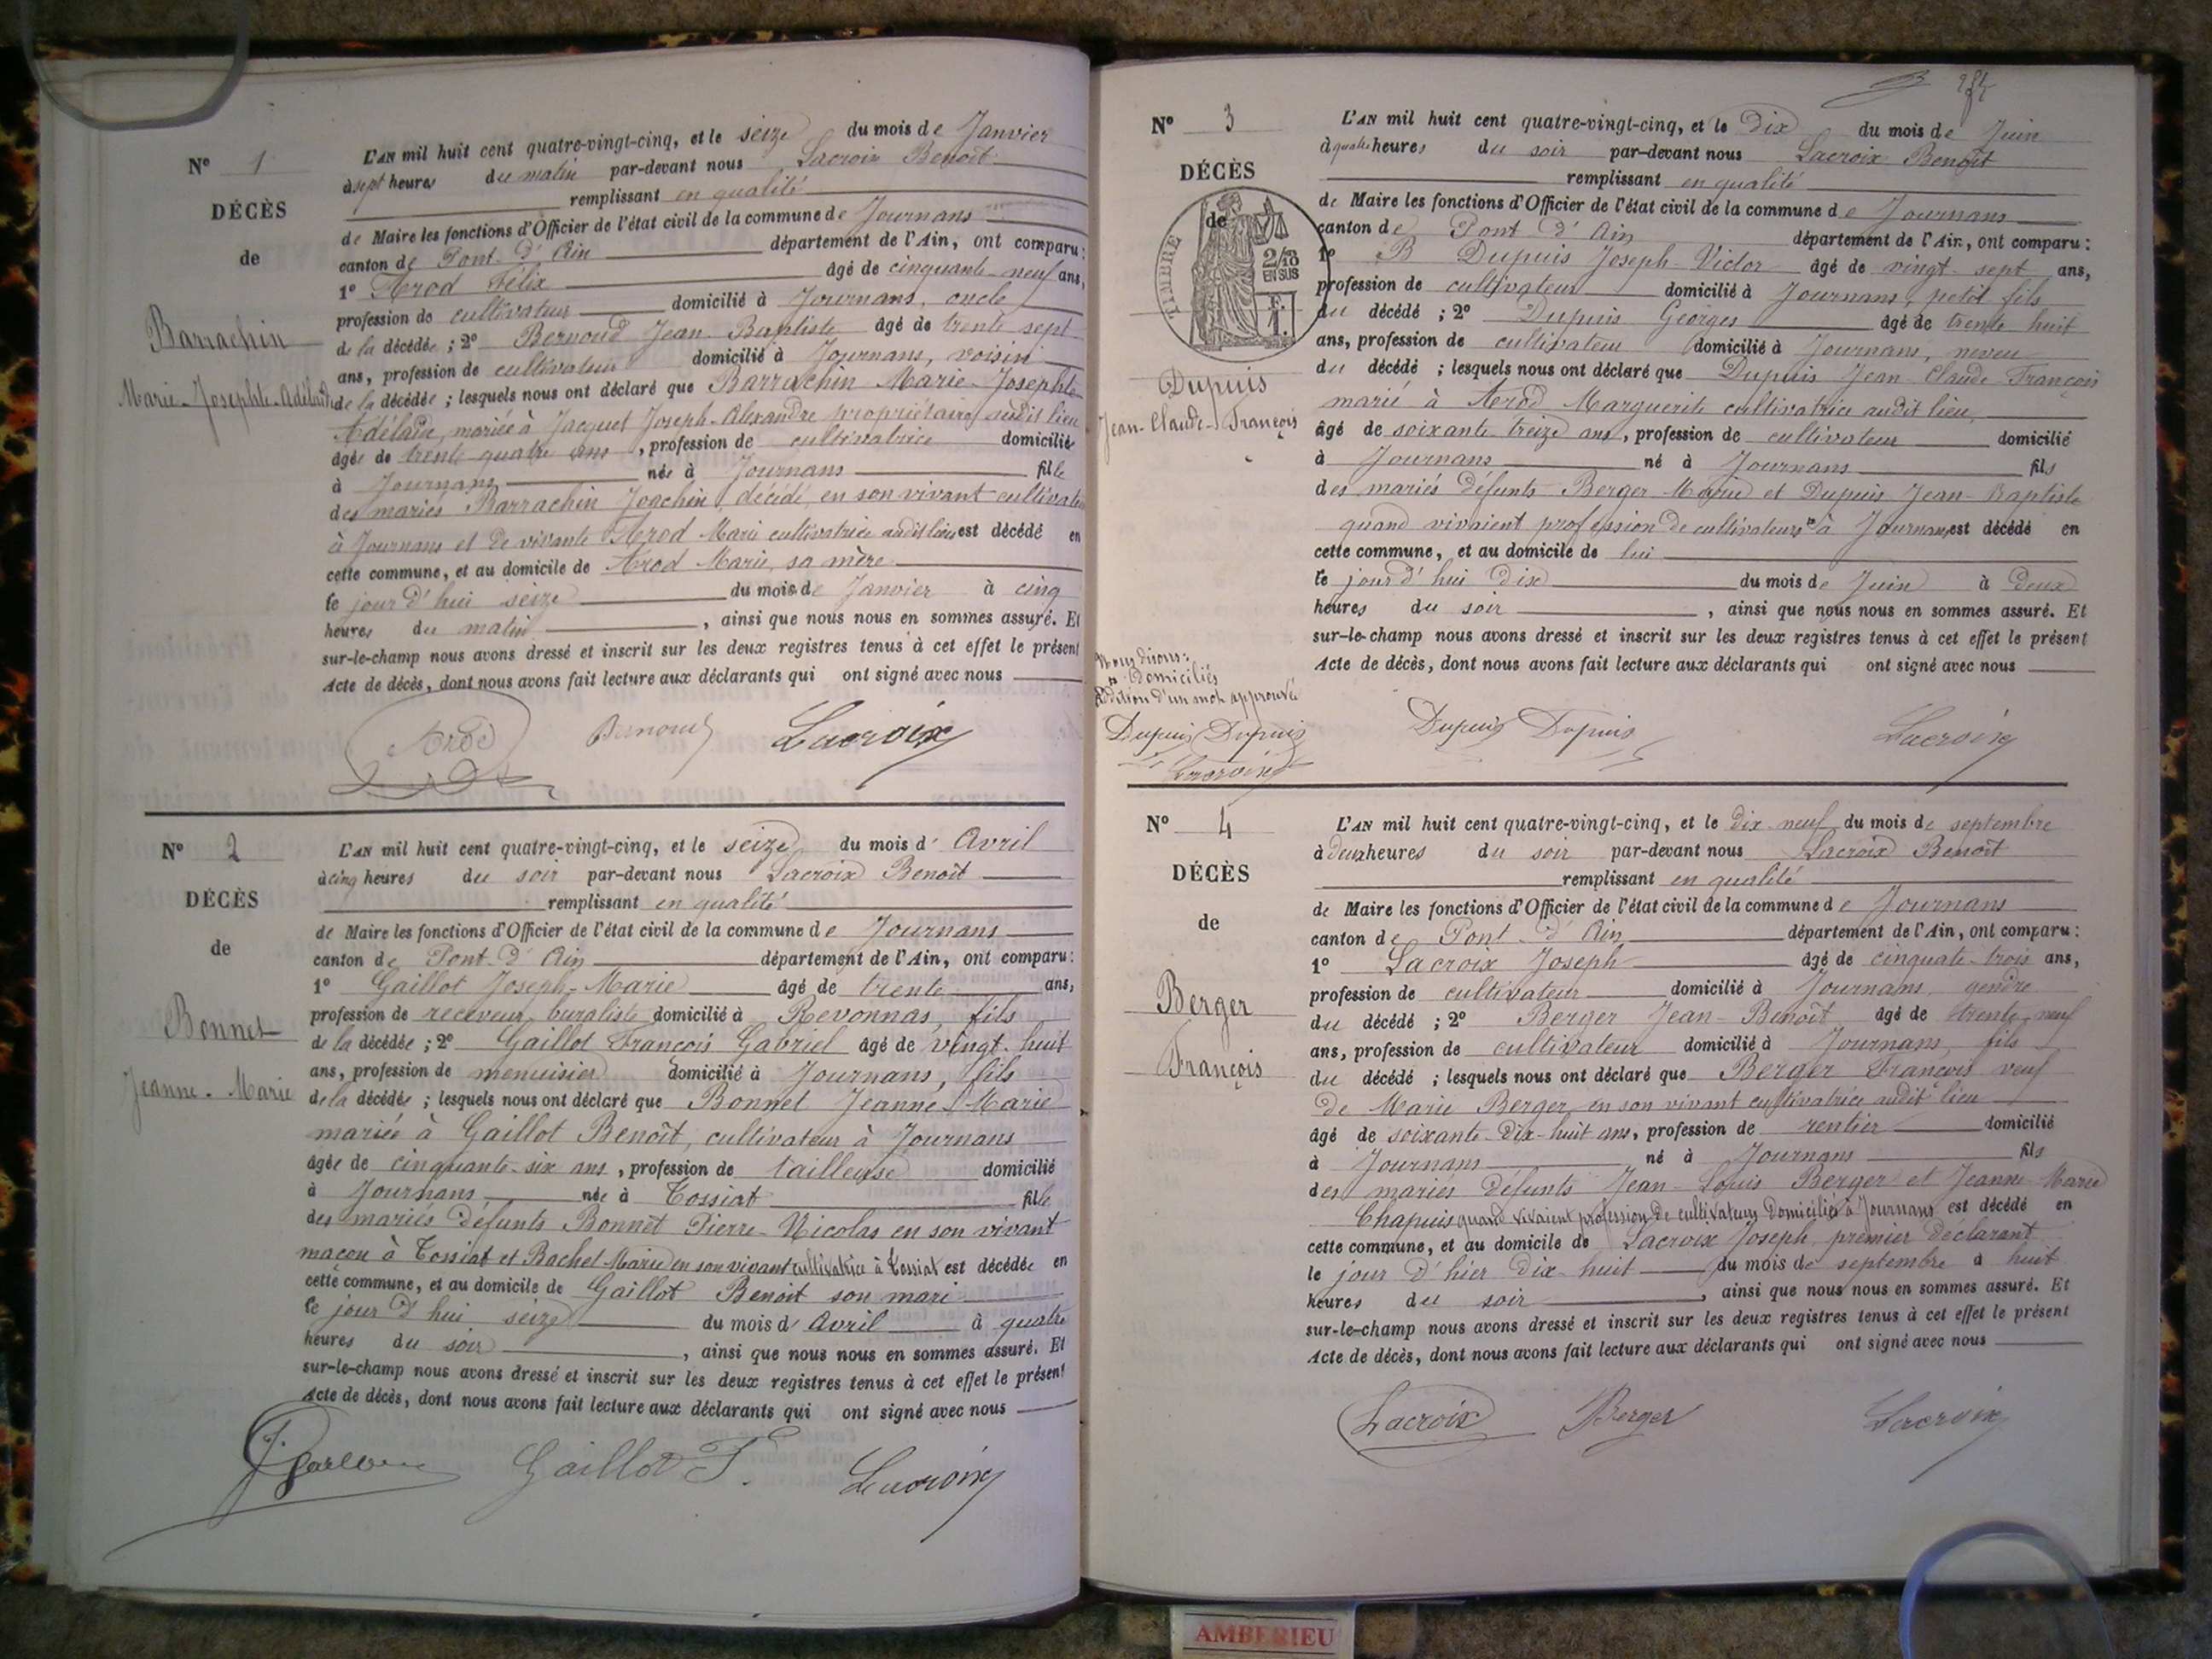 N° 1
DÉCÈS
de
Barrachin
Marie-Josephte-Adélaïde
L'AN mil huit cent quatre-vingt-cinq, et le seize du mois de Janvier
à sept heures du matin par-devant nous Lacroix Benoît
remplissant en qualité
de Maire les fonctions d'Officier de l'état civil de la commune de Journans
canton de Pont-d'Ain département de l'Ain, ont comparu :
1° Arod Félix âgé de cinquante-neuf ans,
profession de cultivateur domicilié à Journans, oncle
de la décédée ; 2° Bernoud Jean-Baptiste âgé de trente sept
ans, profession de cultivateur domicilié à Journans, voisin
de la décédée ; lesquels nous ont déclaré que Barrachin Marie-Josephte
Adélaïde, mariée à Jacquet Joseph-Alexandre propriétaire audit lieu
âgée de trente quatre ans, profession de cultivatrice domicilié
à Journans née à Journans fille
des mariés Barrachin Joachin, décédé, en son vivant cultivateur
à Journans et de vivante Arod Marie cultivatrice audit lieu est décédé en
cette commune, et au domicile de Arod Marie, sa mère
le jour d'hui seize du mois de Janvier à cinq
heures du matin, ainsi que nous nous en sommes assuré. Et
sur-le-champ nous avons dressé et inscrit sur les deux registres tenus à cet effet le présent
Acte de décès, dont nous avons fait lecture aux déclarants qui ont signé avec nous
Arod Bernoud Lacroix
N° 2
DÉCÈS
de
Bonnet
Jeanne-Marie
L'AN mil huit cent quatre-vingt-cinq, et le seize du mois d'Avril
à cinq heures du soir par-devant nous Lacroix Benoît
remplissant en qualité
de Maire les fonctions d'Officier de l'état civil de la commune de Journans
canton de Pont-d'Ain département de l'Ain, ont comparu :
1° Gaillot Joseph-Marie âgé de trente ans,
profession de receveur buraliste domicilié à Revonnas, fils
de la décédée ; 2° Gaillot François Gabriel âgé de vingt-huit
ans, profession de menuisier domicilié à Journans, fils
de la décédée ; lesquels nous ont déclaré que Bonnet Jeanne Marie
mariée à Gaillot Benoît, cultivateur à Journans
âgée de cinquante-six ans, profession de tailleuse domicilié
à Journans née à Tossiat fille
des mariés défunts Bonnet Pierre-Nicolas en son vivant
maçon à Tossiat et Bachel Marie en son vivant cultivatrice à Tossiat est décédée en
cette commune, et au domicile de Gaillot Benoît son mari
le jour d'hui seize du mois d'Avril à quatre
heures du soir, ainsi que nous nous en sommes assuré. Et
sur-le-champ nous avons dressé et inscrit sur les deux registres tenus à cet effet le présent
Acte de décès, dont nous avons fait lecture aux déclarants qui ont signé avec nous
Gaillot F. Lacroix
N° 3
DÉCÈS
de
TIMBRE
2/10
EN SUS
Dupuis
Jean-Claude-François
L'AN mil huit cent quatre-vingt-cinq, et le dix du mois de Juin
à quatre heures du soir par-devant nous Lacroix Benoît
remplissant en qualité
de Maire les fonctions d'Officier de l'état civil de la commune de Journans
canton de Pont d'Ain département de l'Ain, ont comparu :
1° Dupuis Joseph-Victor âgé de vingt-sept ans,
profession de cultivateur domicilié à Journans, petit fils
du décédé ; 2° Dupuis Georges âgé de trente huit
ans, profession de cultivateur domicilié à Journans, neveu
du décédé ; lesquels nous ont déclaré que Dupuis Jean-Claude François
marié à Arod Marguerite cultivatrice audit lieu
âgé de soixante-treize ans, profession de cultivateur domicilié
à Journans né à Journans fils
des mariés défunts Berger Marie et Dupuis Jean-Baptiste
quand vivaient profession de cultivateurs à Journans est décédé en
cette commune, et au domicile de lui
le jour d'hui dix du mois de Juin à deux
heures du soir, ainsi que nous nous en sommes assuré. Et
sur-le-champ nous avons dressé et inscrit sur les deux registres tenus à cet effet le présent
Acte de décès, dont nous avons fait lecture aux déclarants qui ont signé avec nous
Nous disons :
domiciliés
addition d'un mot approuvée
Dupuis Dupuis
Lacroix
Dupuis Dupuis Lacroix
N° 4
DÉCÈS
de
Berger
François
L'AN mil huit cent quatre-vingt-cinq, et le dix-neuf du mois de septembre
à deux heures du soir par-devant nous Lacroix Benoît
remplissant en qualité
de Maire les fonctions d'Officier de l'état civil de la commune de Journans
canton de Pont-d'Ain département de l'Ain, ont comparu :
1° Lacroix Joseph âgé de cinquate-trois ans,
profession de cultivateur domicilié à Journans, gendre
du décédé ; 2° Berger Jean-Benoît âgé de trente-neuf
ans, profession de cultivateur domicilié à Journans, fils
du décédé ; lesquels nous ont déclaré que Berger François veuf
de Marie Berger, en son vivant cultivatrice audit lieu
âgé de soixante-dix-huit ans, profession de rentier domicilié
à Journans né à Journans fils
des mariés défunts Jean-Louis Berger et Jeanne-Marie
Chapuis quand vivaient profession de cultivateurs domiciliés à Journans est décédé en
cette commune, et au domicile de Lacroix Joseph, premier déclarant
le jour d'hier dix-huit du mois de septembre à huit
heures du soir, ainsi que nous nous en sommes assuré. Et
sur-le-champ nous avons dressé et inscrit sur les deux registres tenus à cet effet le présent
Acte de décès, dont nous avons fait lecture aux déclarants qui ont signé avec nous
Lacroix Berger Lacroix
AMBERIEU